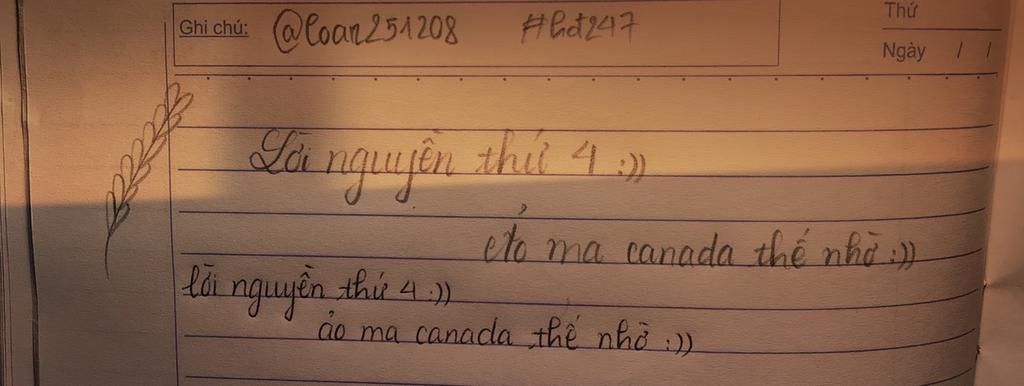 Ghi chú: @loan251208 #hd247 Thứ
Ngày / /
Lời nguyền thứ 4 :))
Ảo ma canada thế nhờ :))
lời nguyền thứ 4 :))
ảo ma canada thế nhờ :))